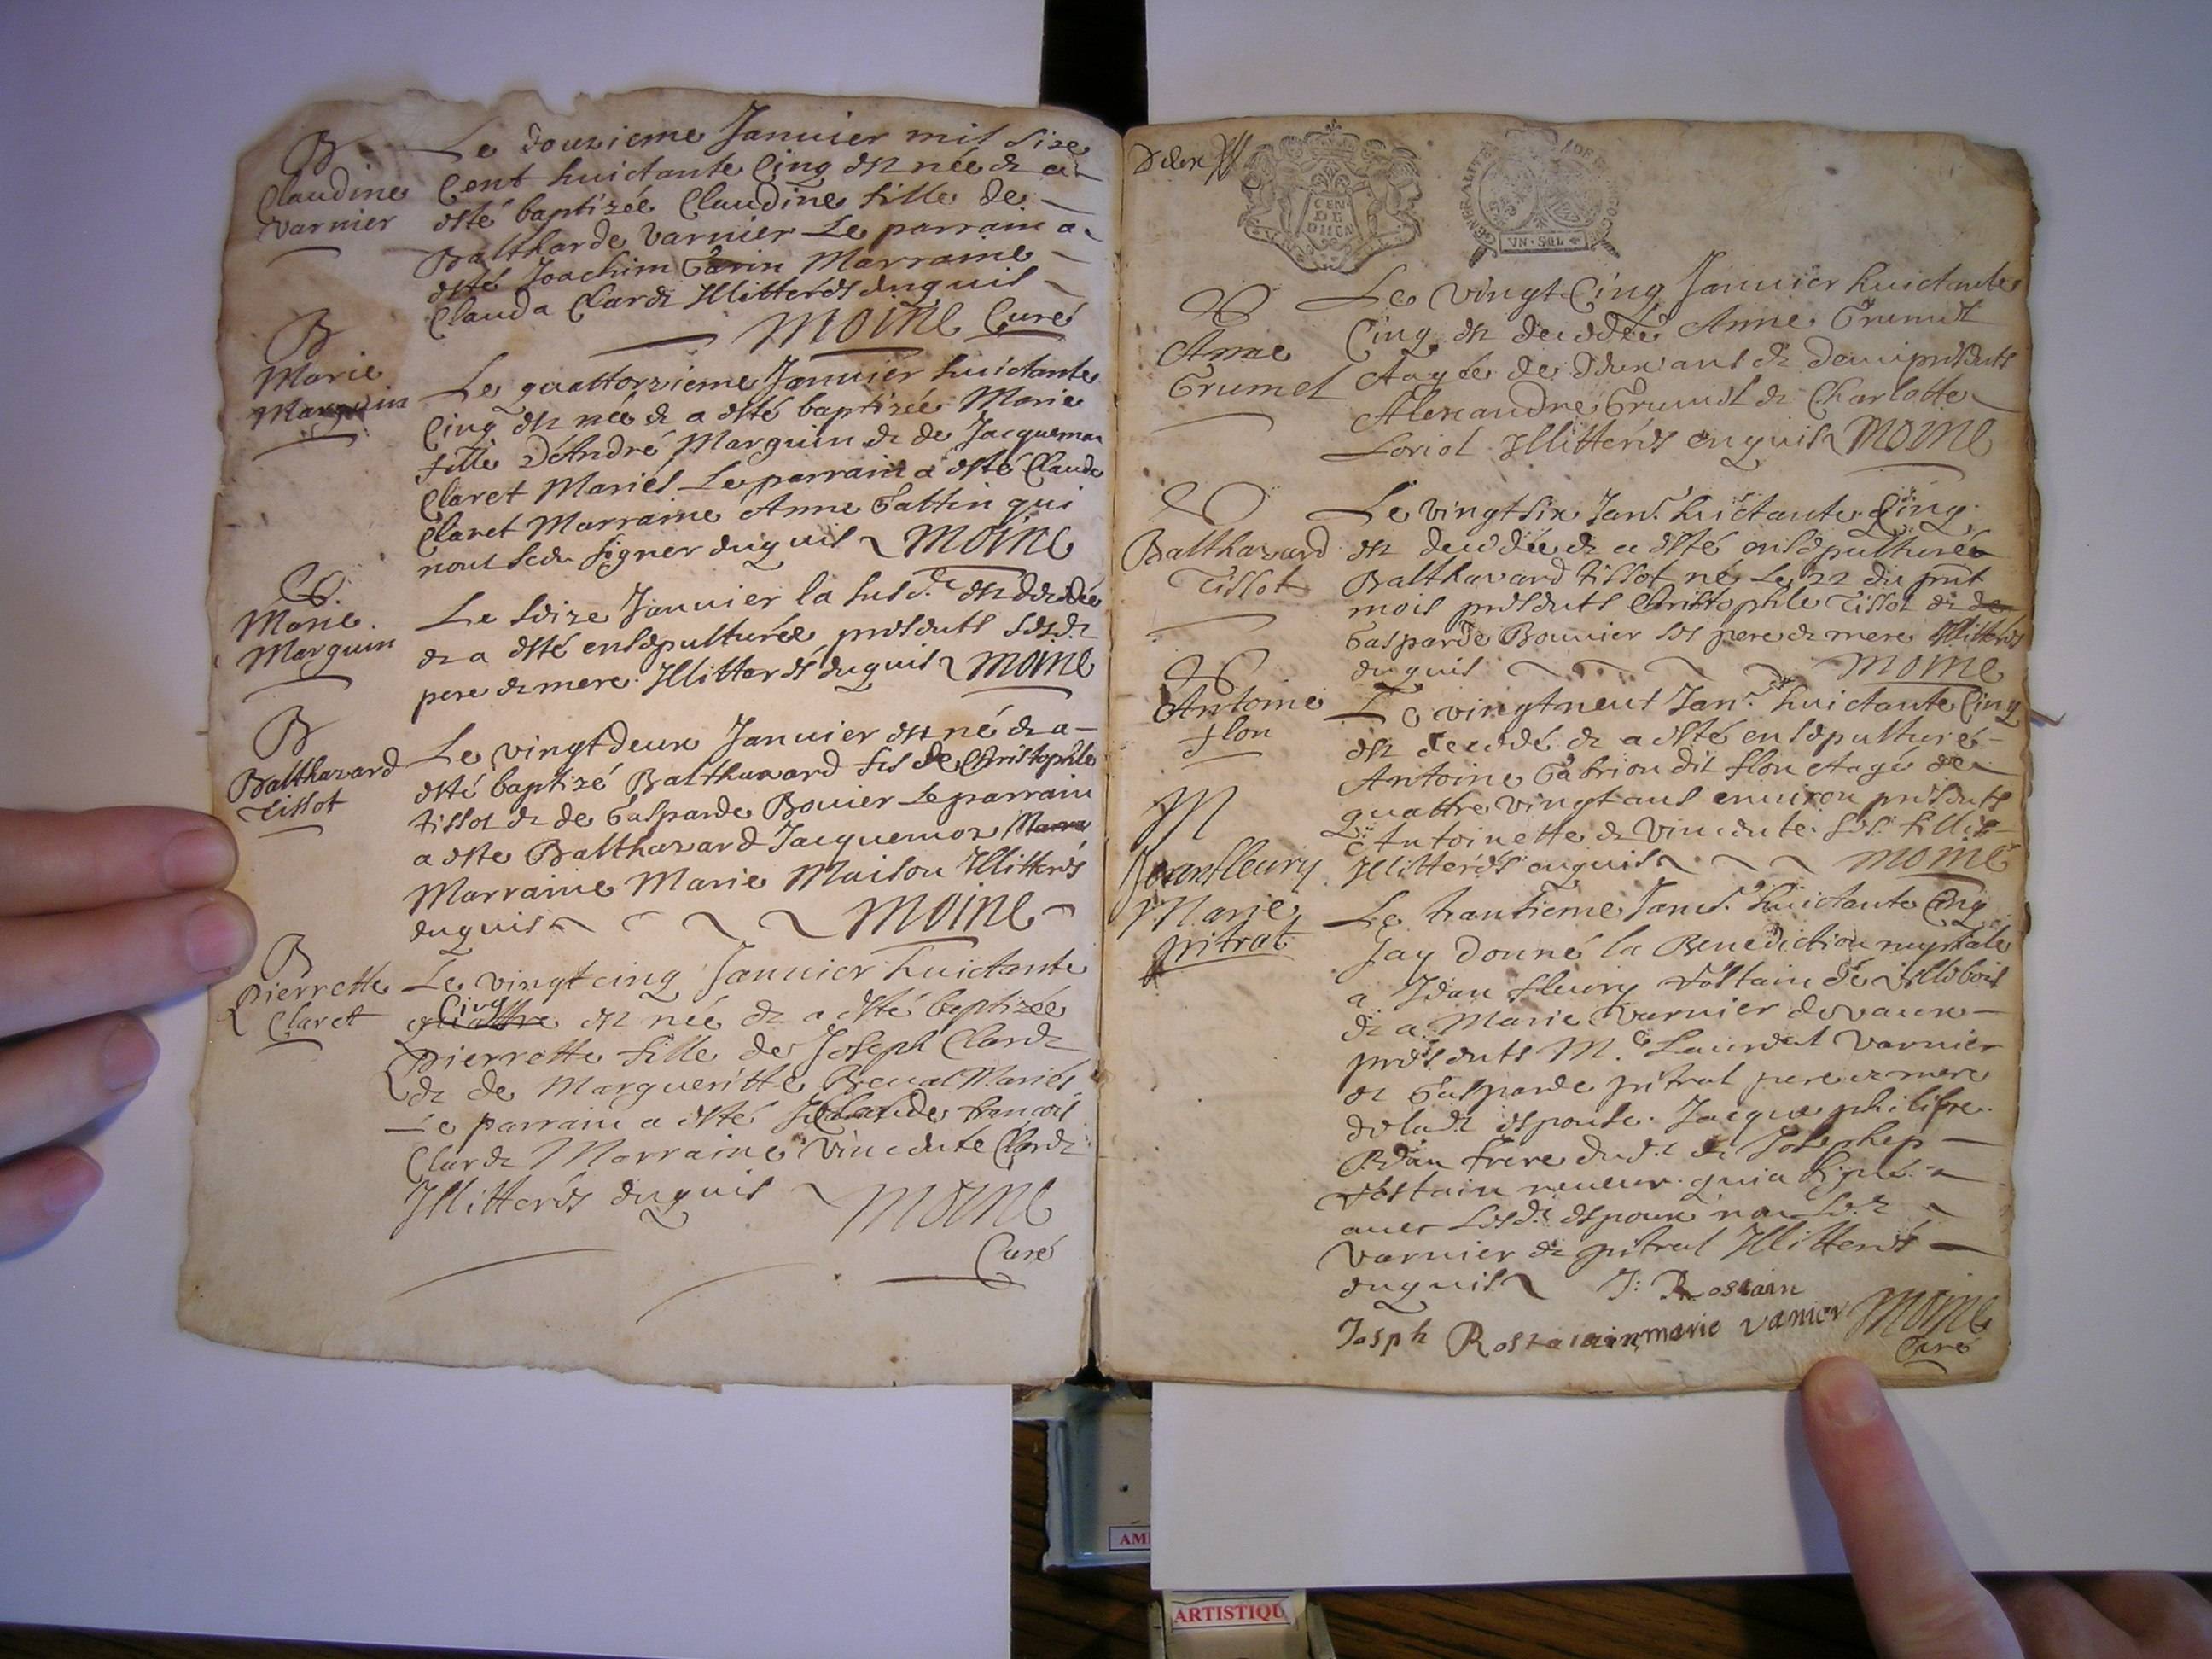 B
Claudine
Varnier
Le douzieme Januier mil size
Cent huictante Cinq est née & a
esté baptizée Claudine fille de
Baltharde Varnier Le parrain a
esté Joachim Garin Marraine
Clauda Claret Illitterés enquis
Moine Curé
B
Marie
Marguin
Le quattorzieme Januier huictante
Cinq est née & a esté baptizée Marie
fille D'André Marguin & de Jacquema
Claret Mariés Le parrain a esté Claude
Claret Marraine Anne Gattin qui
n'ont sceu signer enquis Moine
Marie
Marguin
Le seize Januier la susd.e est decedée
& a esté ensepulturée presents sesd.
pere & mere Illitterés enquis Moine
B
Balthazard
Tissot
Le vingtdeux Januier est né & a
esté baptizé Balthazard fils de Christophle
tissot & de Gasparde Bouier Le parrain
a esté Balthazard Jacquemoz
Marraine Marie Maison Illitterés
enquis Moine
B
Pierrette
Claret
Le vingtcinq Januier huictante
Cinq
quattre est née & a esté baptizée
Pierrette fille de Joseph Claret
& de Margueritte Mariés
Le parrain a esté Claude françois
Claret Marraine Vincente Claret
Illitterés enquis Moine
Curé
GENERALITE DE BOURGOGNE
VN·SOL
Anne
Grumet
Le Vingt Cinq Januier huictante
Cinq est decedée Anne Grumet
Aagée de deux ans & demi presents
Alexandre Grumet & Charlotte
Loriol Illitterés enquis Moine
Balthazard
Tissot
Le Vingtsix Janr. huictante Cinq
est decedée & a esté ensepulturée
Balthazard tissot né Le 22 du pnt
mois presents Christophle Tissot & de
Gasparde Bouuier ses pere & mere Illitterés
enquis Moine
Antoine
flon
Le vingtneuf Janr. huictante Cinq
est decedé & a esté ensepulturé
Antoine Gabrion dit flon Aagé de
quattre vingt ans enuiron presents
Antoinette & Vincente ses filles
Illitterés enquis Moine
M
Jeanfleury
Marie
pitrat
Le trantieme Janr. huictante Cinq
Jay donné la Benediction nuptiale
a Jean fleury Rostain de Villebois
& a Marie Varnier de vaux
presents M.e Laurent Varnier
& Gasparde pitrat pere & mere
de lad.e espouse Jacque philibre
frere dud.t & Joseph
Rostain neueu qui a signé
auec Lesd.s espoux non Led.t
Varnier & pitrat Illitterés
enquis J: Rostain
Josph Rostain marie vanier Moine
Curé
AMI
ARTISTIQU